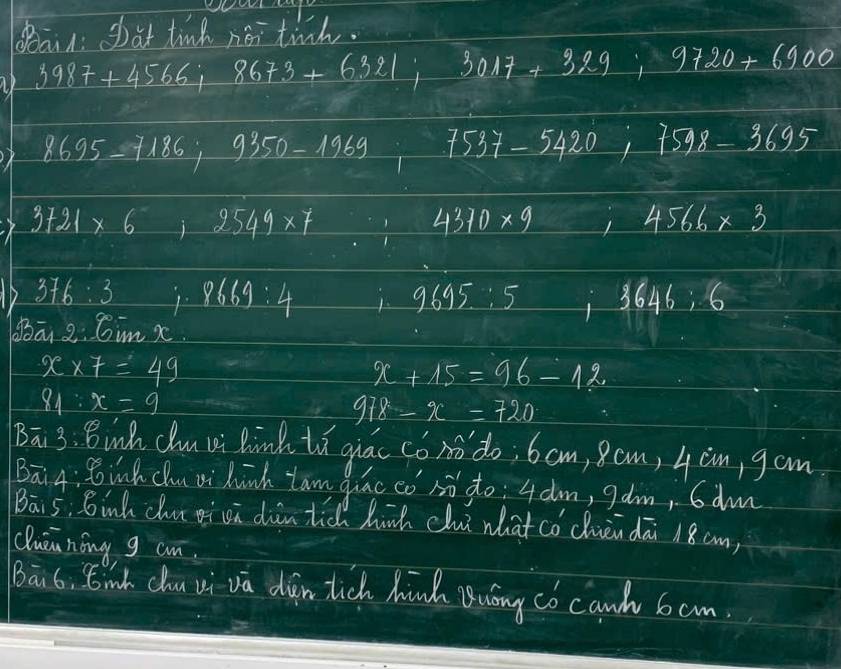 Bài 1: Đặt tính rồi tính.
a) 3987 + 4566 ; 8673 + 6321 ; 3017 + 329 ; 9720 + 6900
b) 8695 - 7186 ; 9350 - 1969 ; 7537 - 5420 ; 7598 - 3695
c) 3721 x 6 ; 2549 x 7 ; 4370 x 9 ; 4566 x 3
d) 376 : 3 ; 8669 : 4 ; 9695 : 5 ; 3646 : 6
Bài 2: Tìm x.
x x 7 = 49 x + 15 = 96 - 12
81 : x = 9 978 - x = 720
Bài 3: Tính chu vi hình tứ giác có số đo : 6 cm, 8 cm, 4 cm, 9 cm.
Bài 4: Tính chu vi hình tam giác có số đo : 4 dm, 9 dm, 6 dm
Bài 5: Tính chu vi và diện tích hình chữ nhật có chiều dài 18 cm,
chiều rộng 9 cm.
Bài 6: Tính chu vi và diện tích hình vuông có cạnh 6 cm.